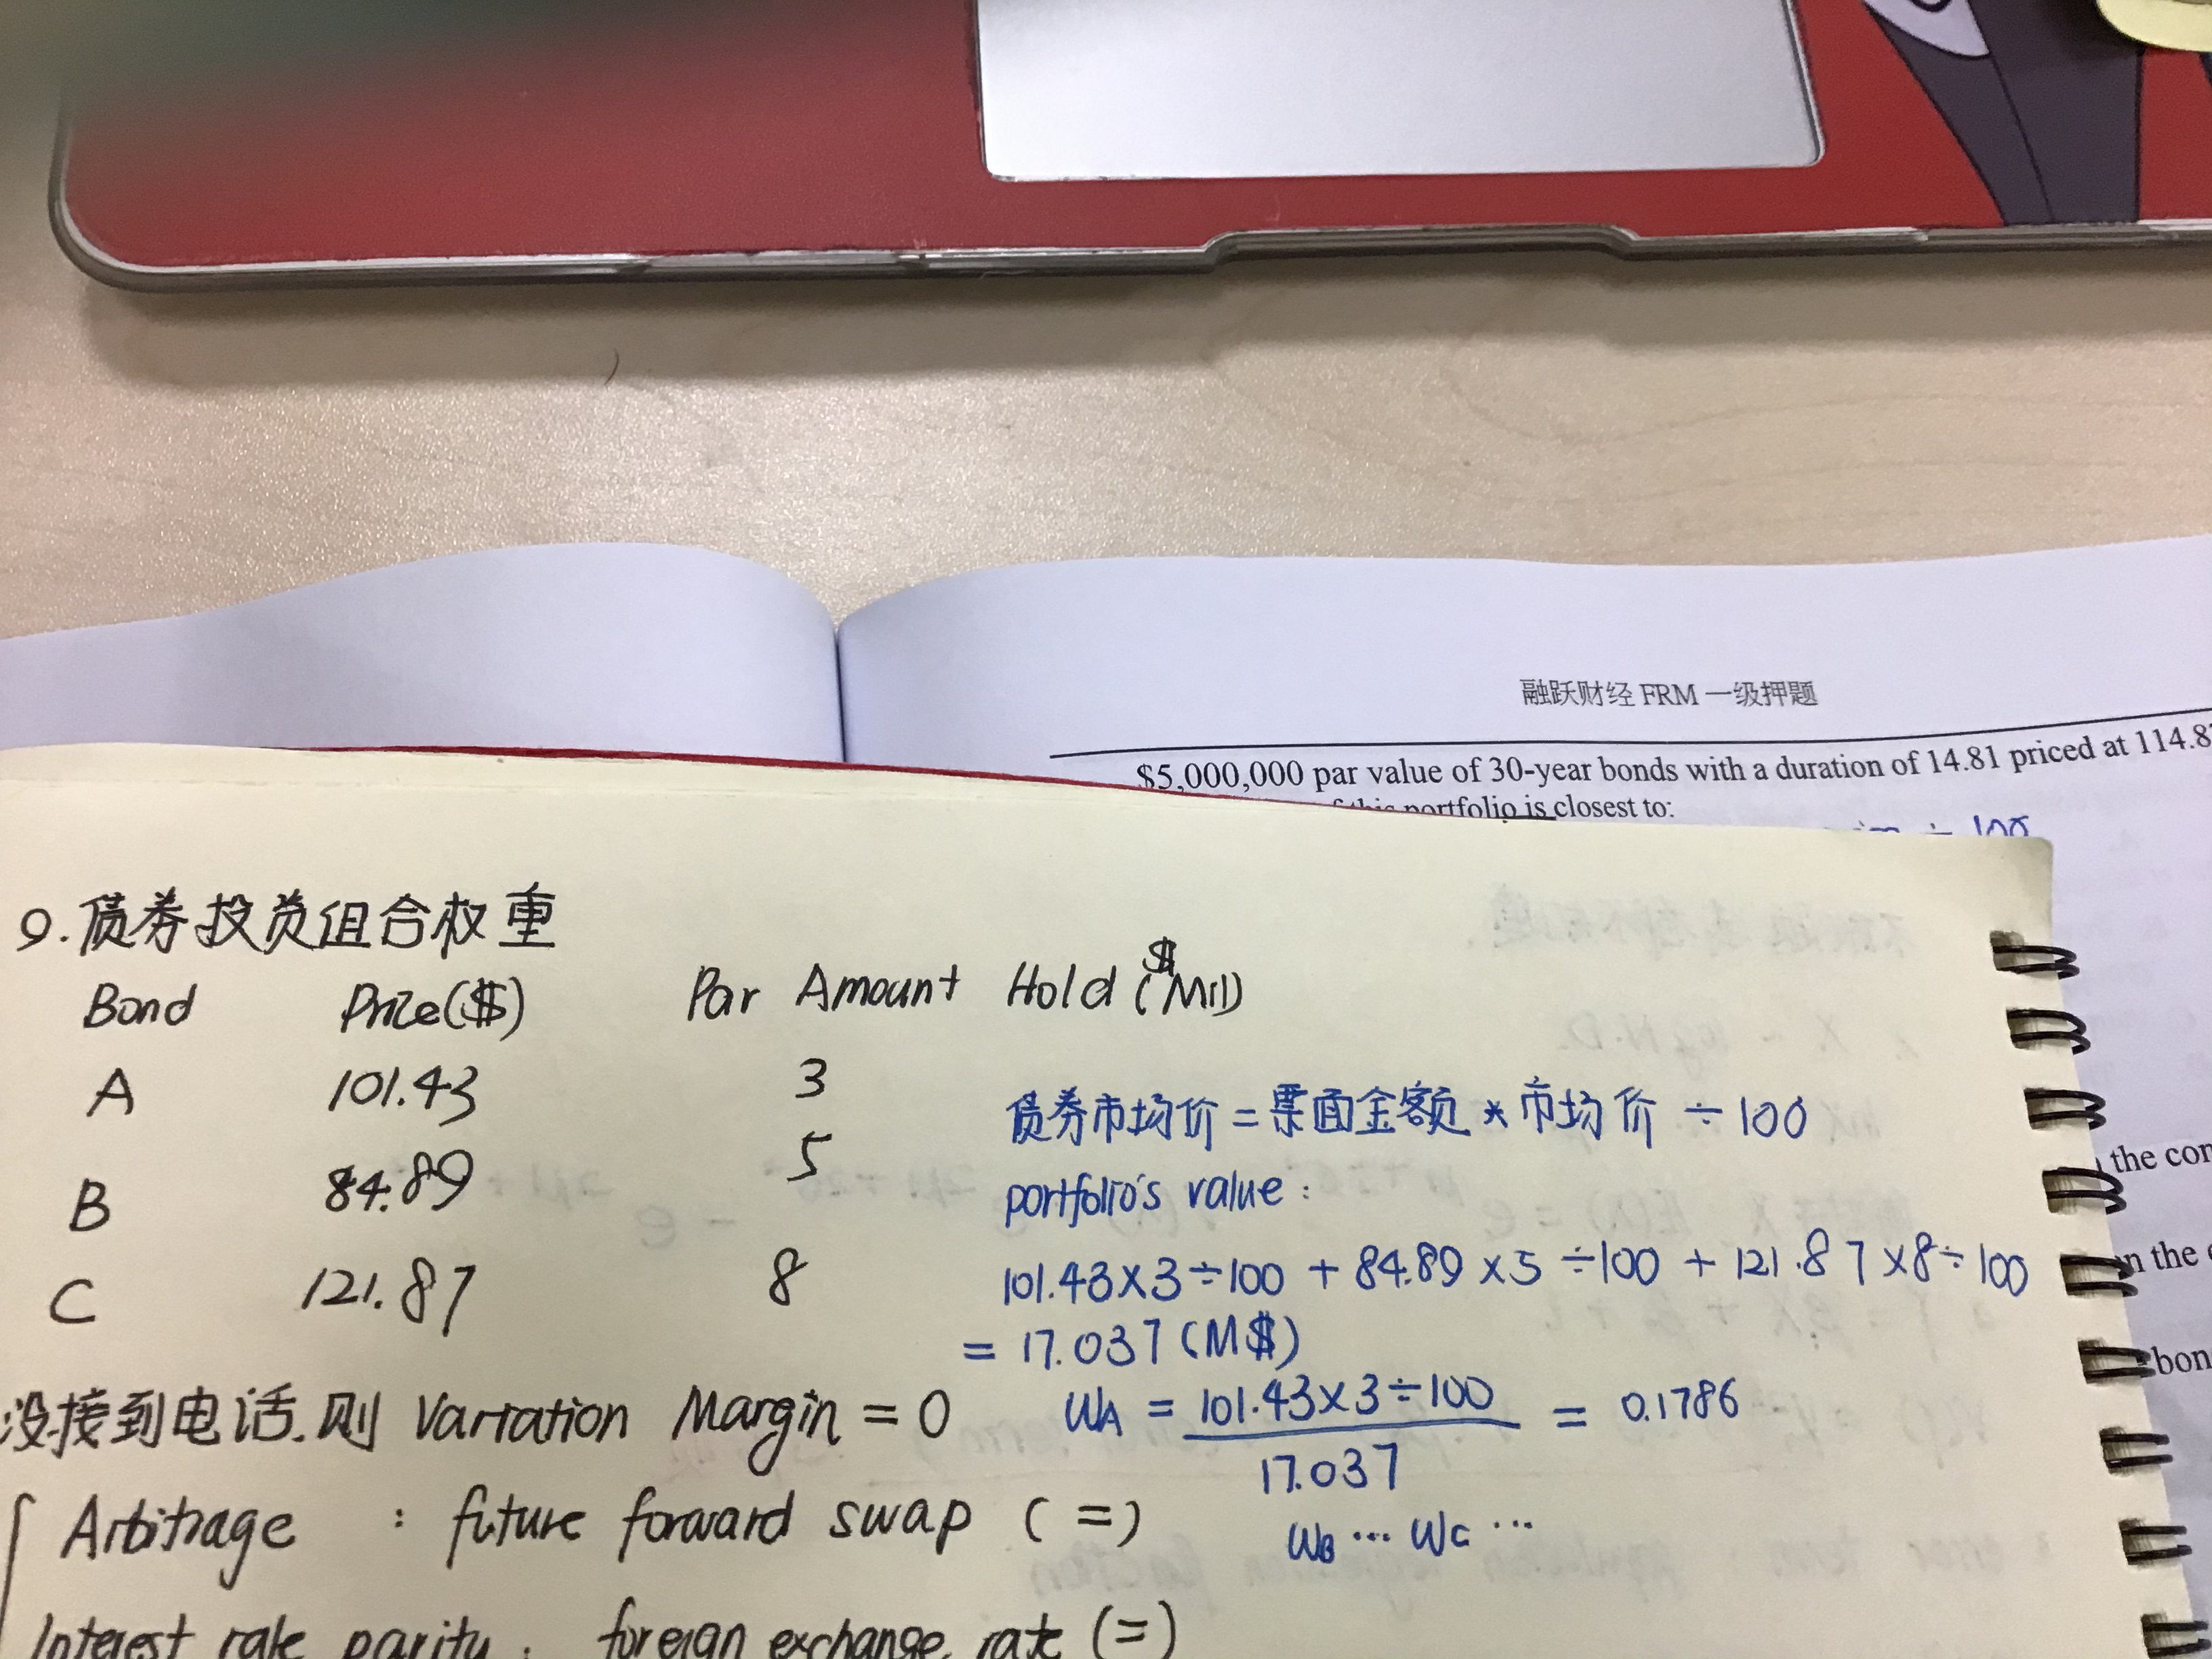 融跃财经 FRM 一级押题
$5,000,000 par value of 30-year bonds with a duration of 14.81 priced at 114.8
this portfolio is closest to:
÷ 100
9.债券投资组合权重
Bond Price($) Par Amount Hold ($Mil)
A 101.43 3
B 84.89 5
C 121.87 8
债券市场价=票面金额*市场价 ÷100
portfolio's value:
101.43×3÷100 + 84.89×5÷100 + 121.87×8÷100
= 17.037 (M$)
WA = 101.43×3÷100 / 17.037 = 0.1786
WB ... WC ...
没接到电话.则 Variation Margin = 0
Arbitrage : future forward swap (=)
Interest rate parity : foreign exchange rate (=)
the con
n the
bon